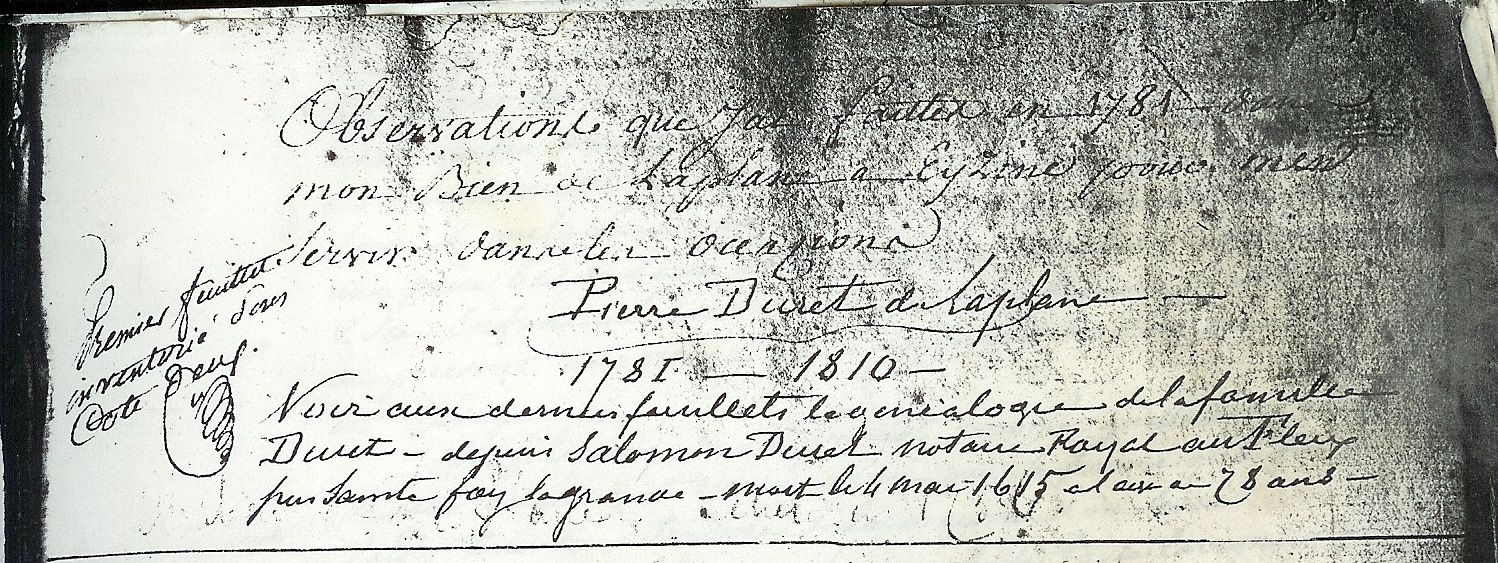 Observations que Jai faittes en 1781 dans
mon Bien de Laplane a Eyzine pour mes
servir dans les ocazions
Pierre Duret de Laplane —
1781 — 1810 —
Premier feuillet
inventorié sous
Cote Deux.
Voir aux derniers feuillets la génealogie de la famille
Duret — depuis Salomon Duret notaire Royal au Fleix
près Sainte foy lagrande — mort le 4 mai 1615 a 78 ans —